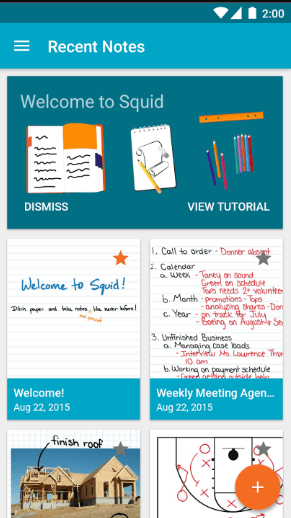 2:00
Recent Notes
Welcome to Squid
DISMISS
VIEW TUTORIAL
Welcome to Squid!
Ditch paper and take notes, like never before!
Welcome!
Aug 22, 2015
1. Call to order - Donner absent
2. Calendar
a. Week - Taney on sound
Green on schedule
Taps needs 2+ volunteer
b. Month - promotions - Taps
- analyzing shares - Don
c. Year - on track for July
- Boeing on August + Se
3. Unfinished Business
a. Managing case loads
- Interview Ms. Lawrence Thur
10 am
b. Working on payment schedule
Weekly Meeting Agen...
Aug 22, 2015
finish roof